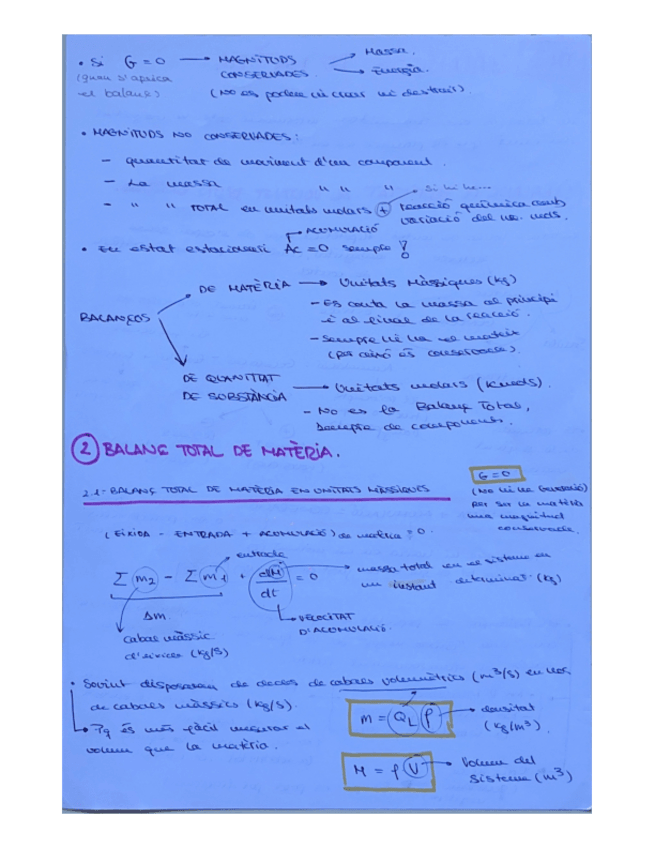 • Si G = 0 → MAGNITUDS CONSERVADES → Massa.
→ Energia.
(quan s'aplica el balanç)
(No es poden ni crear ni destruir).
• MAGNITUDS NO CONSERVADES:
- quantitat de moviment d'un component.
- La massa " " " Si hi ha...
- " " TOTAL en unitats molars + reacció química amb variació del no. mols.
ACUMULACIÓ
• En estat estacionari Ac = 0 sempre!
BALANÇOS
DE MATÈRIA → Unitats Màssiques (kg)
- Es conta la massa al principi i al final de la reacció.
- Sempre hi ha el mateix (per això és conservada).
DE QUANTITAT DE SUBSTÀNCIA → Unitats molars (Kmols).
- No es fa Balanç Total, sempre de components.
2 BALANÇ TOTAL DE MATÈRIA.
2.1- BALANÇ TOTAL DE MATÈRIA EN UNITATS MÀSSIQUES
G = 0
(No hi ha Generació) per ser la matèria una magnitud conservada.
(EIXIDA - ENTRADA + ACUMULACIÓ) de matèria = 0.
entrada
Σ m2 - Σ m1 + dM/dt = 0
massa total en el sistema en un instant determinat (kg)
Δm
VELOCITAT D'ACUMULACIÓ.
cabal màssic d'eixides (kg/s)
• Sovint disposarem de dades de cabals volumètrics (m³/s) en lloc de cabals màssics (kg/s).
Pq és més fàcil mesurar el volum que la matèria.
m = QL ρ → densitat (kg/m³).
M = ρ V → Volum del sistema (m³)